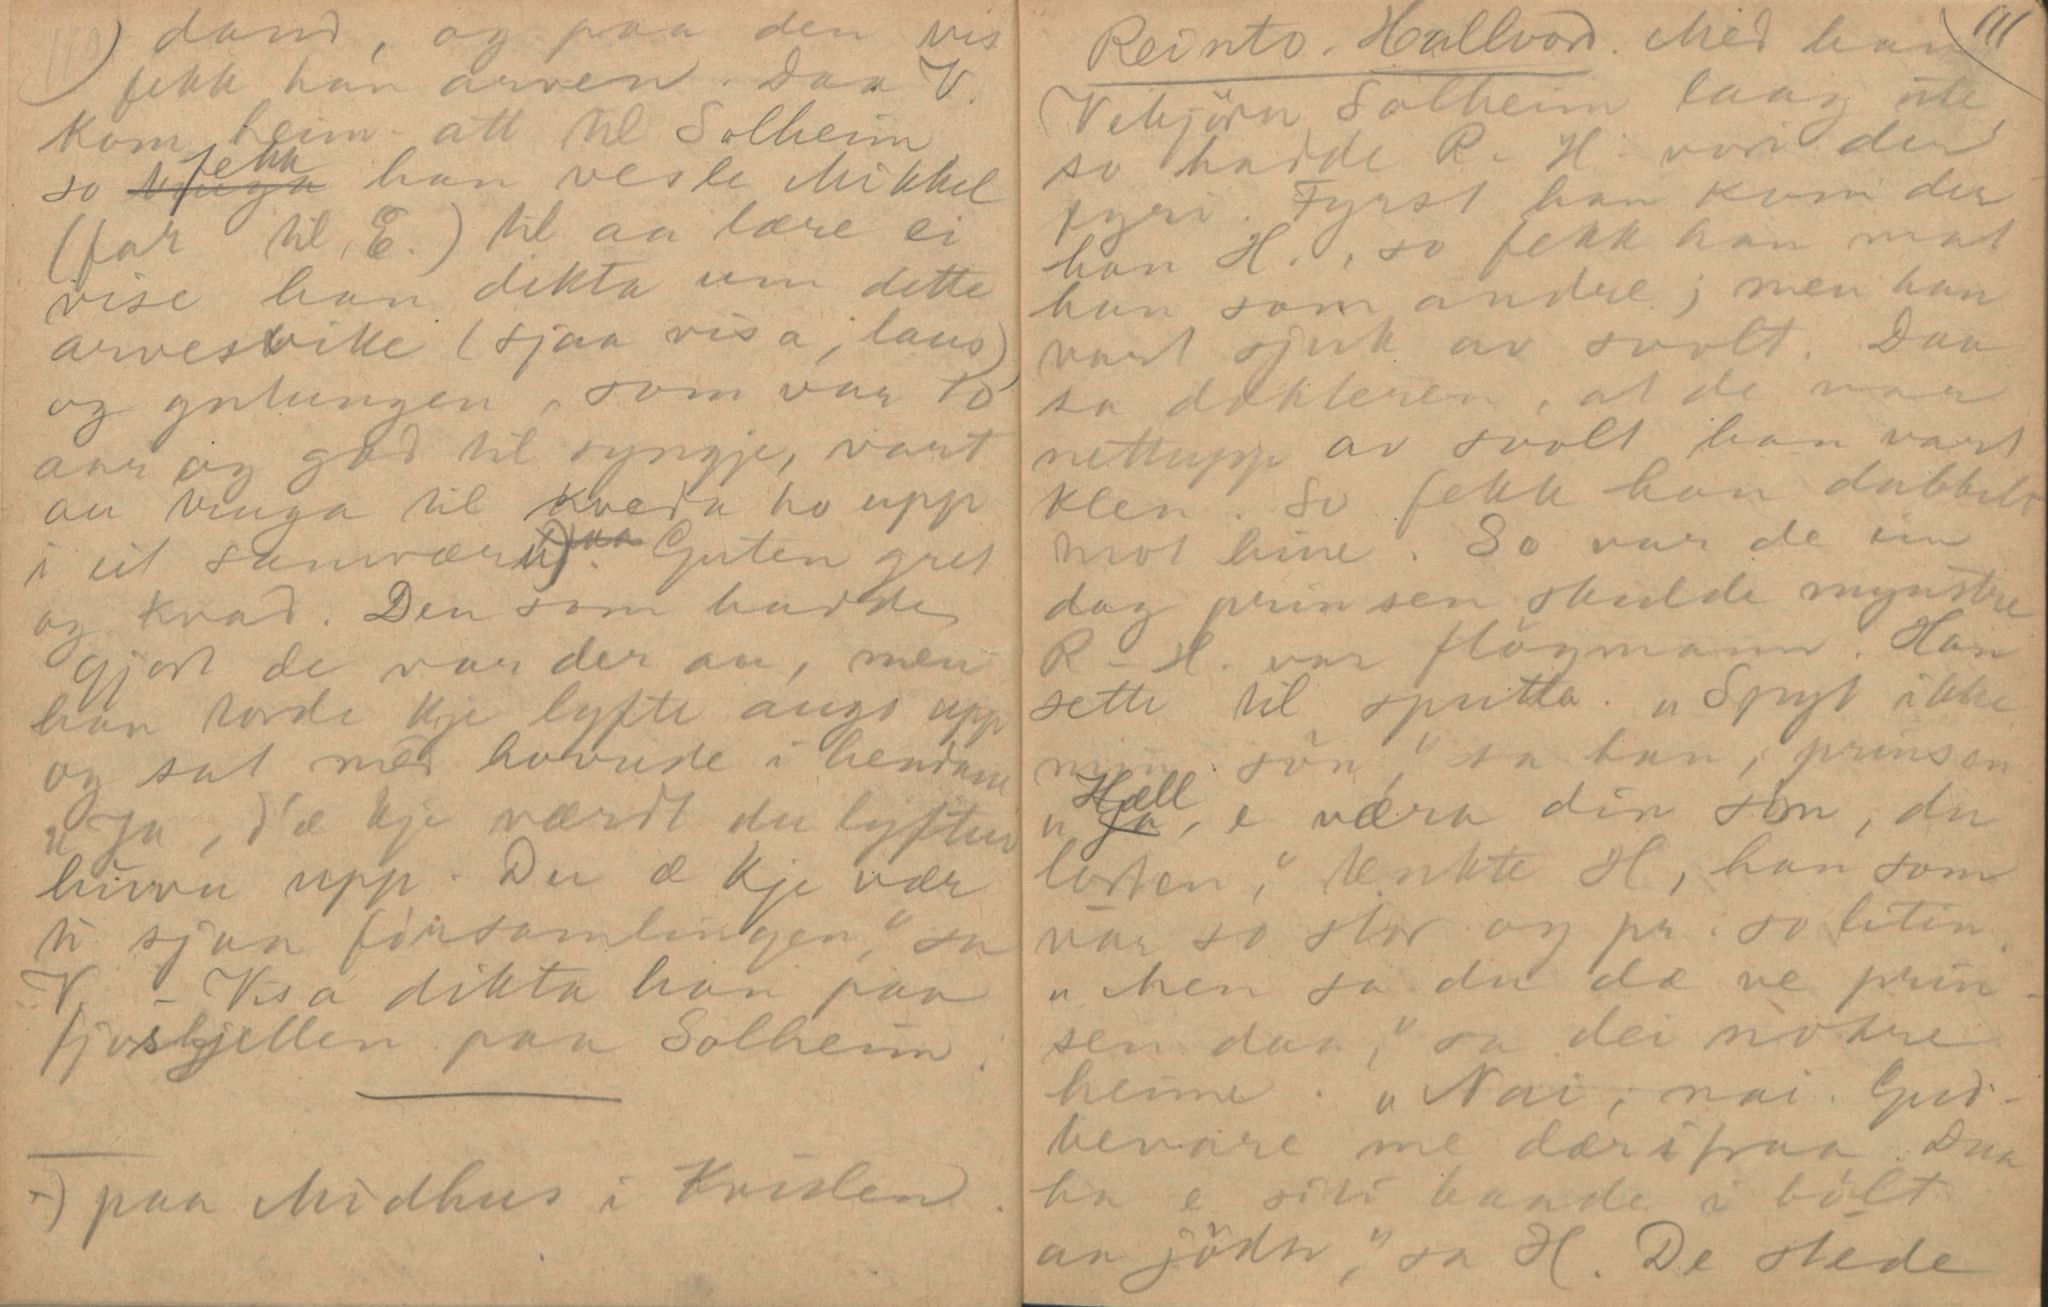 110) dand, og paa den vis
fekk han arven. Daa V.
kom heim att til Solheim
so fekk han vesle Mikkel
(far til E.) til aa lære ei
vise han dikta um dette
arvesvike (sjaa visa, laus)
og gutungen, som var 10
aar og god til syngje, vart
au tinga til kveda ho upp
i eit samvær 1) paa. Guten gret
og kvad. Den som hadde
gjort de var der au, men
han torde kje lyfte augo upp
og sat med hovude i hendane
"Ja, d'æ kje værdt du lyfter
huvvu upp. Du æ kje vær
ti sjaa forsamlingen," sa
V. - Visa dikta han paa
fjoshjellen paa Solheim.
1) paa Midhus i Kvislen.
111
Reinto-Hallvord. Med han
Vebjörn Solheim laag ute,
so hadde R-H. vori der
fyri. Fyrst han kom der
han H., so fekk han mat
han som andre; men han
vart sjuk av svolt. Daa
sa dokteren, at de var
nettupp av svolt han vart
klen. So fekk han dubbelt
mot hine. So var de ein
dag prinsen skulde mynstre
R-H. var flögmann. Han
sette til sputta. "Spyt ikke
min sön," sa han, prinsen
"Hæll, e væra din sön, du
lorten," tenkte H, han som
var so stor og pr. so liten.
"Men sa du dæ ve prin-
sen daa," sa dei nokre
heime. "Nai, nai. Gud-
bevare me dærifraa. Daa
ha e siti baade i bolt
aa jödn," sa H. De stede